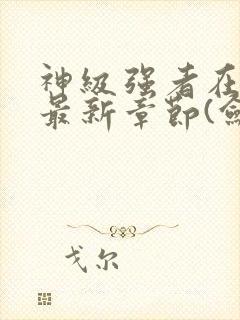 神级强者在
最新章节(
戈尔